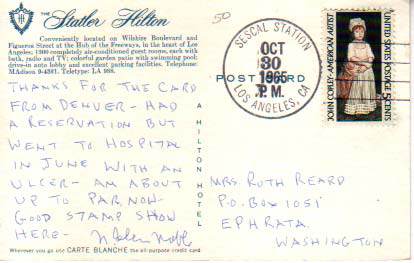 THE
Statler Hilton
50
Conveniently located on Wilshire Boulevard and
Figueroa Street at the Hub of the Freeways, in the heart of Los
Angeles; 1300 completely air-conditioned guest rooms, each with
bath, radio and TV; colorful garden patio with swimming pool;
drive-in auto lobby and excellent parking facilities. Telephone:
MAdison 9-4321. Teletype: LA 998.
THANKS FOR THE CARD
FROM DENVER - HAD
A RESERVATION BUT
WENT TO HOSPITAL
IN JUNE WITH AN
ULCER - AM ABOUT
UP TO PAR NOW -
GOOD STAMP SHOW
HERE -
Wherever you go use CARTE BLANCHE the all-purpose credit card
A HILTON HOTEL
POST CARD
SESCAL STATION
OCT
30
1965
P.M.
LOS ANGELES, CA
JOHN COPLEY-AMERICAN ARTIST
UNITED STATES POSTAGE 5 CENTS
MRS. RUTH REARD
P.O. BOX 1051
EPHRATA
WASHINGTON